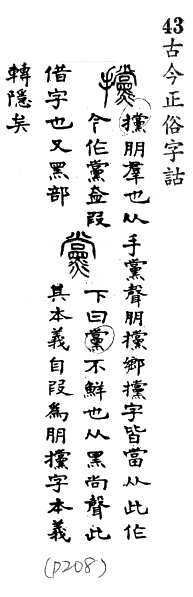 43
古今正俗字詁
攩
攩朋羣也从手黨聲朋攩鄉攩字皆當从此作
今作黨盇叚
借字也又黑部
黨
下曰黨不鮮也从黑尚聲此
其本義自叚爲朋攩字本義
轉隱矣
(P208)